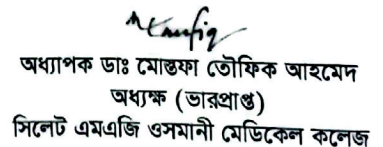 অধ্যাপক ডাঃ মোস্তফা তৌফিক আহমেদ
অধ্যক্ষ (ভারপ্রাপ্ত)
সিলেট এমএজি ওসমানী মেডিকেল কলেজ